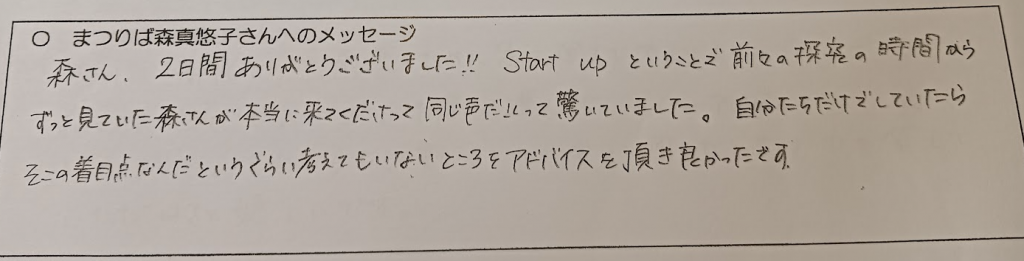 ○ まつりば森真悠子さんへのメッセージ
森さん、2日間ありがとうございました!! Start up ということで前々の探究の時間から
ずっと見ていた森さんが本当に来てくだって同じ声だ!!って驚いていました。自分たちだけでしていたら
そこの着目点なんだというぐらい考えてもいないところをアドバイスを頂き良かったです